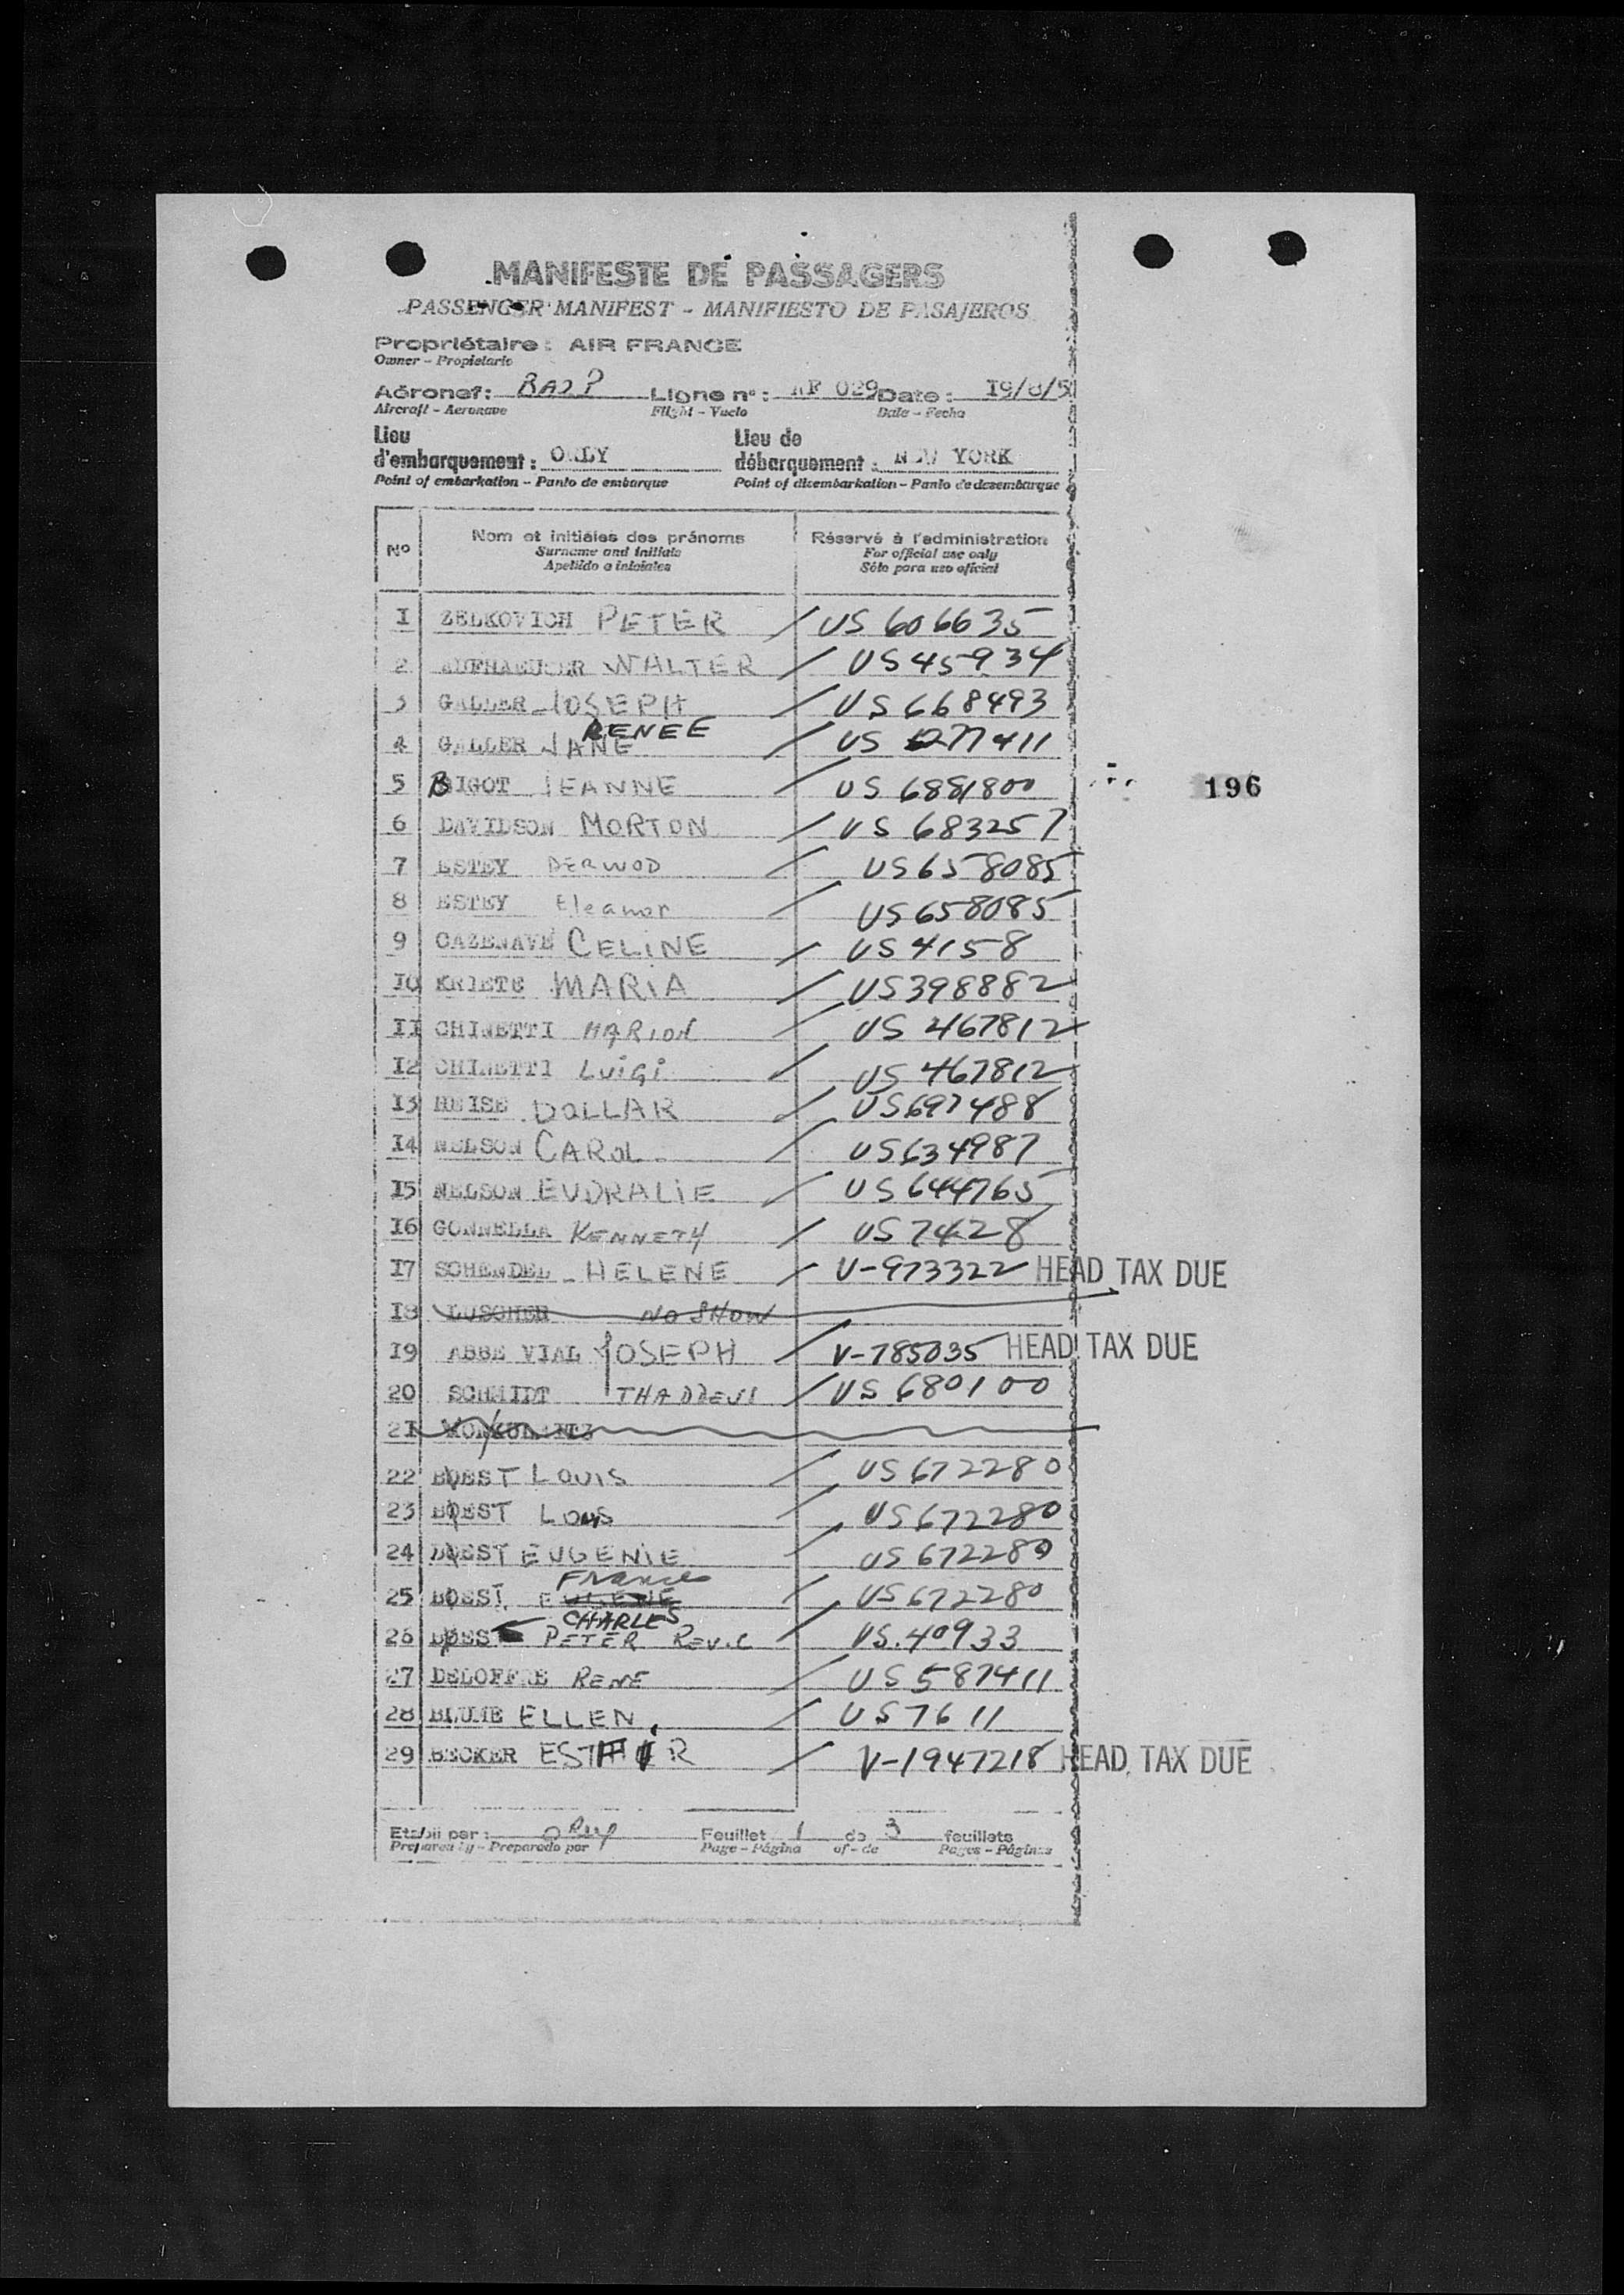 MANIFESTE DE PASSAGERS
PASSENGER MANIFEST - MANIFIESTO DE PASAJEROS
Propriétaire : AIR FRANCE
Owner - Propietario
Aéronef : Ligne n° : AF 029 Date : 19/8/5
Aircraft - Aeronave Flight - Vuelo Date - Fecha
Lieu d'embarquement : ORLY Lieu de débarquement : NEW YORK
Point of embarkation - Punto de embarque Point of disembarkation - Punto de desembarque
N° Nom et initiales des prénoms Réservé à l'administration
Surname and initials For official use only
Apellido e iniciales Sólo para uso oficial
1 ZELKOVICH PETER / US 606635
2 WALTER / US 45934
3 GALLER JOSEPH / US 668493
RENEE
4 GALLER JANE / US 277411
5 BIGOT JEANNE / US 6881800
196
6 DAVIDSON MORTON / US 683257
7 ESTEY DERWOD / US 658085
8 ESTEY Eleanor / US 658085
9 CAZENAVE CELINE / US 4158
10 KRIETE MARIA / US 398882
11 CHINETTI MARION / US 467812
12 CHINETTI LUIGI / US 467812
13 HEISE DOLLAR / US 697488
14 NELSON CAROL / US 634987
15 NELSON EUDRALIE / US 644765
16 GONNELLA KENNETH / US 7428
17 SCHENDEL HELENE / V-973322 HEAD TAX DUE
18 LUSCHER NO SHOW
19 ABBE VIAL JOSEPH / V-785035 HEAD TAX DUE
20 SCHMIDT THADDEUS / US 680100
21
22 BEST LOUIS / US 672280
23 BEST LOUIS / US 672280
24 BEST EUGENIE / US 672280
Frances
25 BEST EUGENE / US 672280
CHARLES
26 BEST PETER REV. C / US. 40933
27 DELOFFRE RENE / US 587411
28 BLUME ELLEN / US 7611
29 BECKER ESTHER / V-1947218 HEAD TAX DUE
Etabli par : ORLY Feuillet 1 de 3 feuillets
Prepared by - Preparado por Page - Página of - de Pages - Páginas